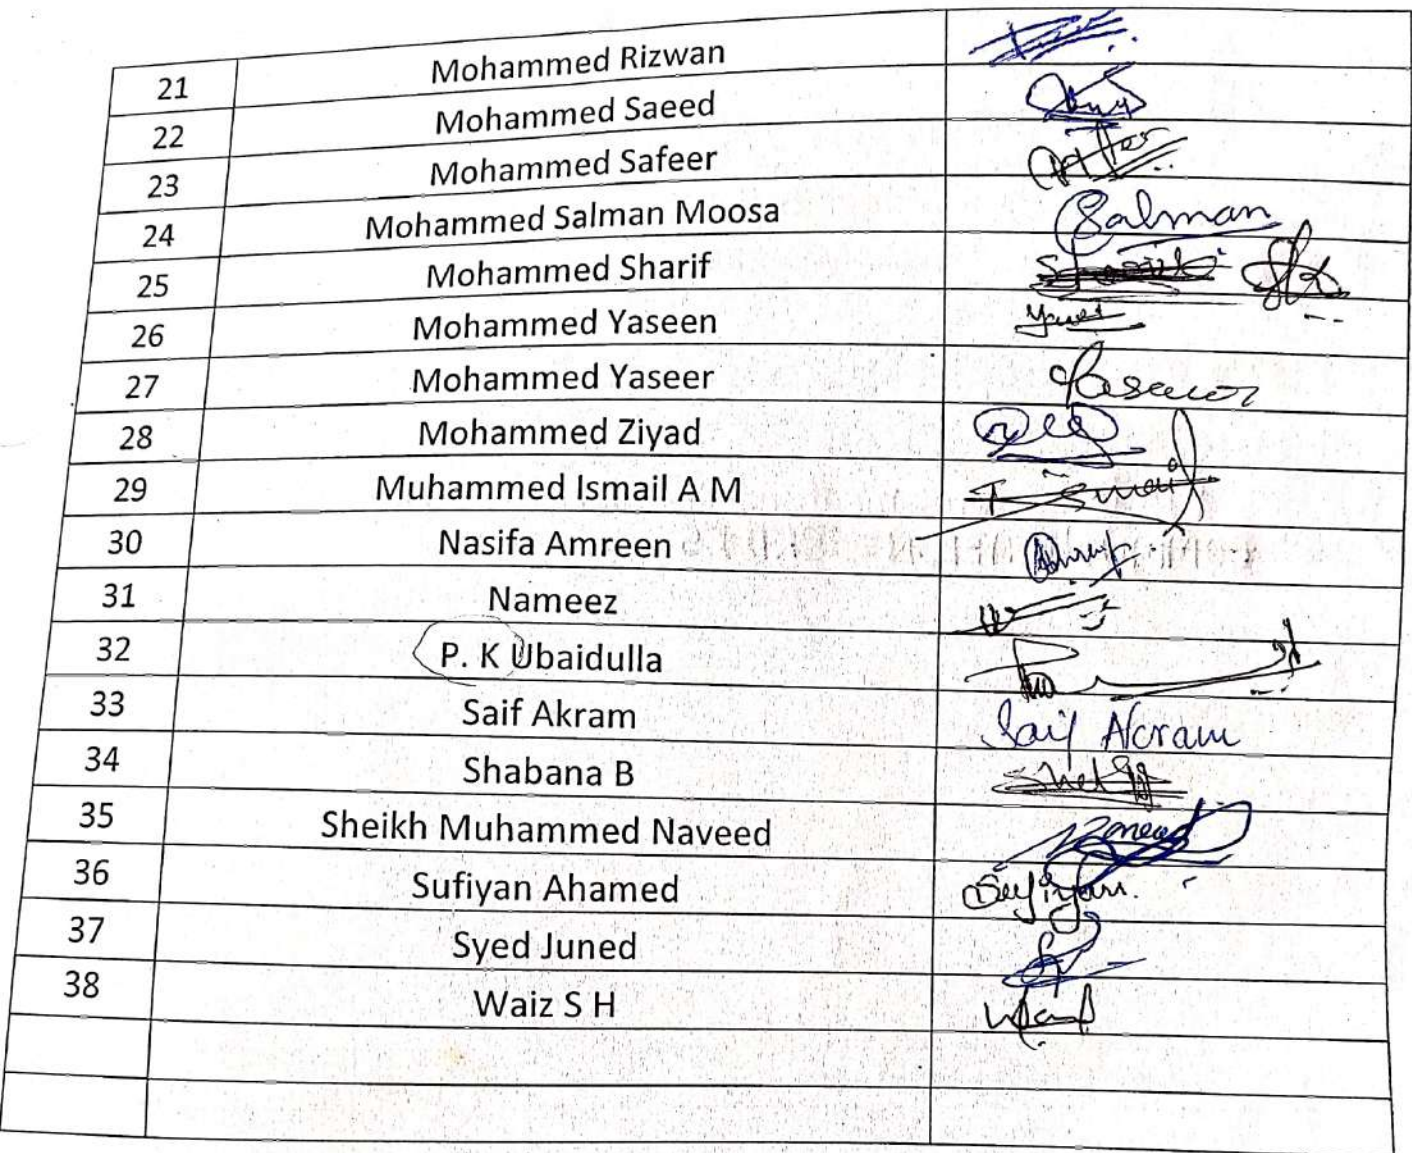 21 Mohammed Rizwan
22 Mohammed Saeed
23 Mohammed Safeer
24 Mohammed Salman Moosa Salman
25 Mohammed Sharif
26 Mohammed Yaseen
27 Mohammed Yaseer
28 Mohammed Ziyad
29 Muhammed Ismail A M
30 Nasifa Amreen
31 Nameez
32 P. K Ubaidulla
33 Saif Akram Saif Akram
34 Shabana B
35 Sheikh Muhammed Naveed
36 Sufiyan Ahamed Sufiyan
37 Syed Juned
38 Waiz S H